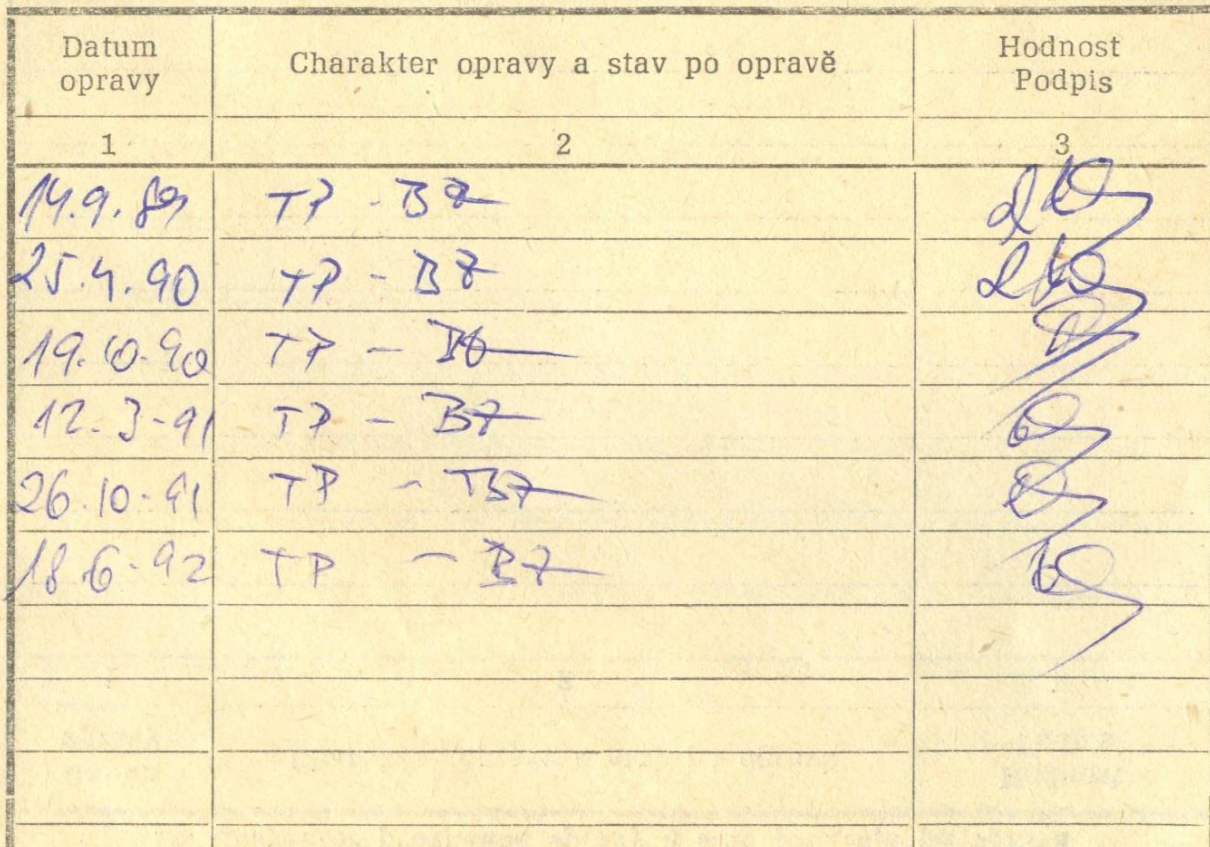 Datum opravy Charakter opravy a stav po opravě Hodnost Podpis
1 2 3
14.9.89 TP - BZ
25.4.90 TP - BZ
19.10.90 TP -
12.3.91 TP - BZ
26.10.91 TP - BZ
18.6.92 TP - BZ